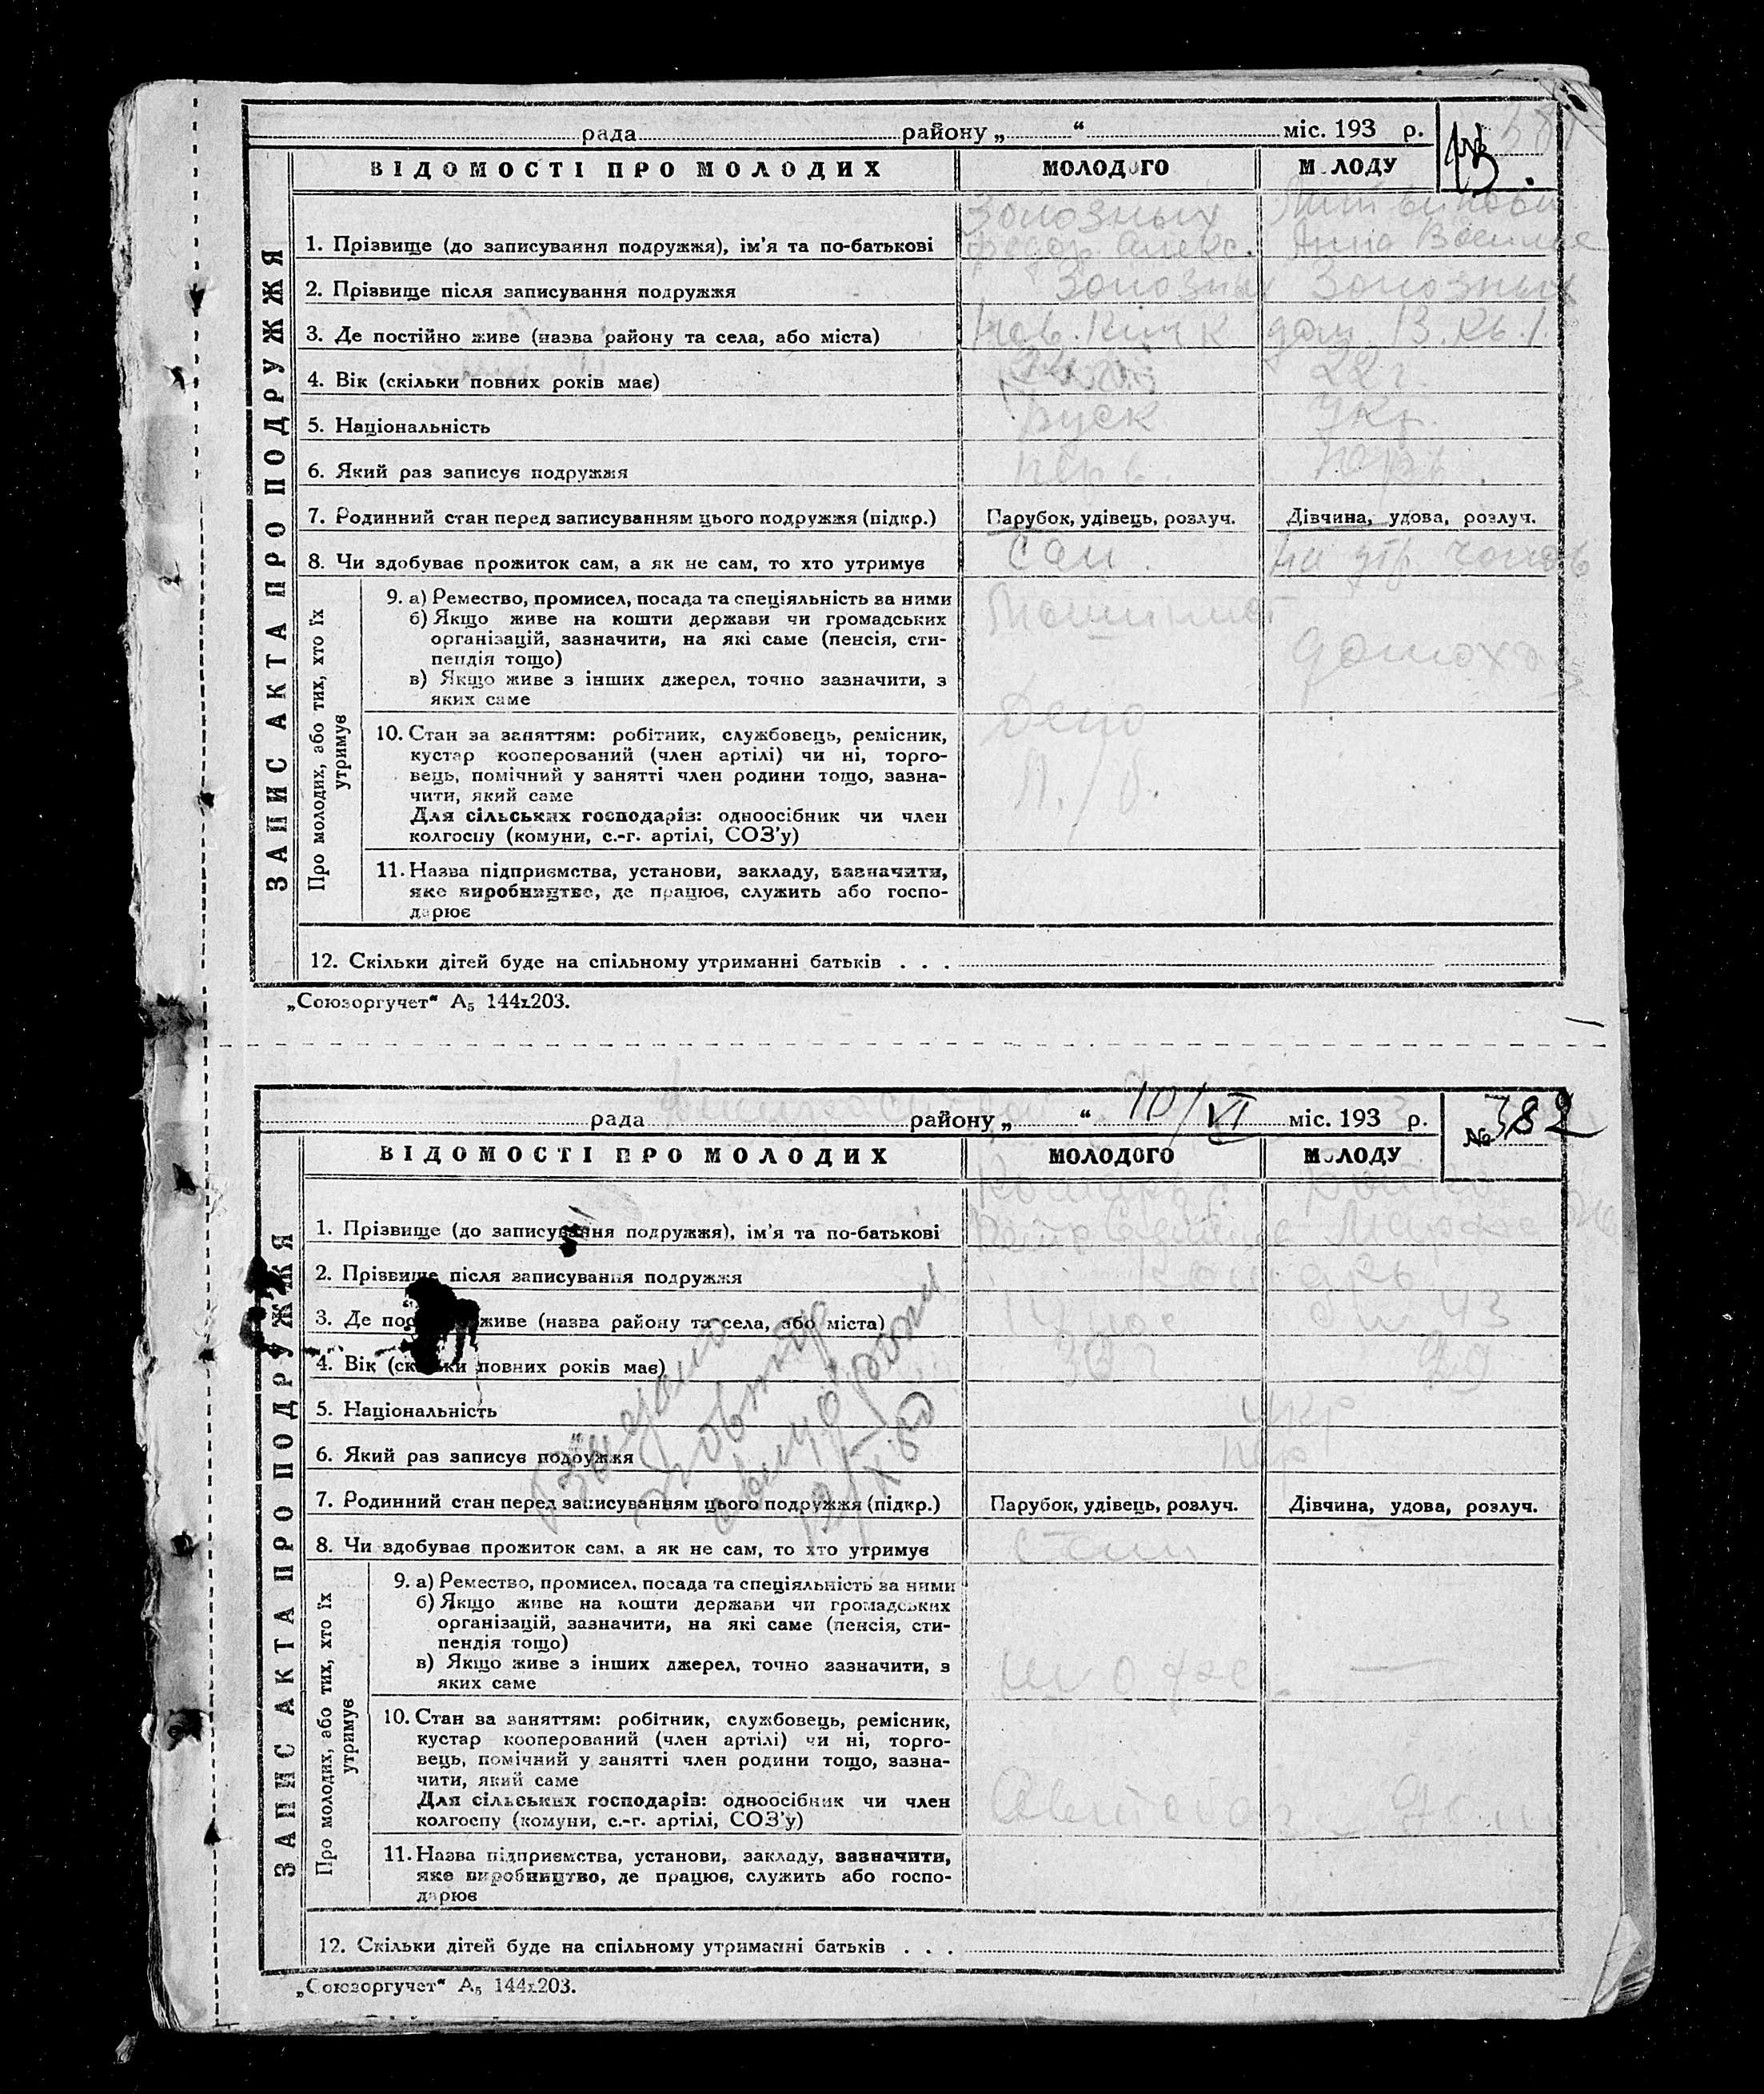 рада району „ “ міс. 193 р. №
13.
381
ВІДОМОСТІ ПРО МОЛОДИХ МОЛОДОГО МОЛОДУ
ЗАПИС АКТА ПРО ПОДРУЖЖЯ
Золозных
Федор Алекс. Анна Василье
1. Прізвище (до записування подружжя), ім’я та по-батькові
2. Прізвище після записування подружжя Золозных Золозных
3. Де постійно живе (назва району та села, або міста) дом. 13. кв. 1.
4. Вік (скільки повних років має) 22 г.
5. Національність Руск Укр.
6. Який раз записує подружжя перв. перв.
7. Родинний стан перед записуванням цього подружжя (підкр.) Парубок, удівець, розлуч. Дівчина, удова, розлуч.
8. Чи здобуває прожиток сам, а як не сам, то хто утримує Сам. на утр.
Про молодих, або тих, хто їх утримує
9. а) Ремество, промисел, посада та спеціяльність за ними Машинист
б) Якщо живе на кошти держави чи громадських
організацій, зазначити, на які саме (пенсія, сти- домохоз
пендія тощо)
в) Якщо живе з інших джерел, точно зазначити, з
яких саме
Депо
10. Стан за заняттям: робітник, службовець, ремісник,
кустар кооперований (член артілі) чи ні, торго-
вець, помічний у занятті член родини тощо, зазна-
чити, який саме
Для сільських господарів: одноосібник чи член
колгоспу (комуни, с.-г. артілі, СОЗ’у)
11. Назва підприємства, установи, закладу, зазначити,
яке виробництво, де працює, служить або госпо-
дарює
12. Скільки дітей буде на спільному утриманні батьків . . .
„Союзоргучет“ А₅ 144х203.
рада району „ “ 10/VI міс. 193 р. № 382
ВІДОМОСТІ ПРО МОЛОДИХ МОЛОДОГО МОЛОДУ
ЗАПИС АКТА ПРО ПОДРУЖЖЯ
1. Прізвище (до записування подружжя), ім’я та по-батькові
2. Прізвище після записування подружжя
3. Де постійно живе (назва району та села, або міста)
4. Вік (скільки повних років має) 30 29
5. Національність укр
6. Який раз записує подружжя пер
7. Родинний стан перед записуванням цього подружжя (підкр.) Парубок, удівець, розлуч. Дівчина, удова, розлуч.
8. Чи здобуває прожиток сам, а як не сам, то хто утримує Сам
Про молодих, або тих, хто їх утримує
9. а) Ремество, промисел, посада та спеціяльність за ними
б) Якщо живе на кошти держави чи громадських
організацій, зазначити, на які саме (пенсія, сти-
пендія тощо)
в) Якщо живе з інших джерел, точно зазначити, з
яких саме —
10. Стан за заняттям: робітник, службовець, ремісник,
кустар кооперований (член артілі) чи ні, торго-
вець, помічний у занятті член родини тощо, зазна-
чити, який саме
Для сільських господарів: одноосібник чи член
колгоспу (комуни, с.-г. артілі, СОЗ’у)
11. Назва підприємства, установи, закладу, зазначити,
яке виробництво, де працює, служить або госпо-
дарює
12. Скільки дітей буде на спільному утриманні батьків . . .
„Союзоргучет“ А₅ 144х203.